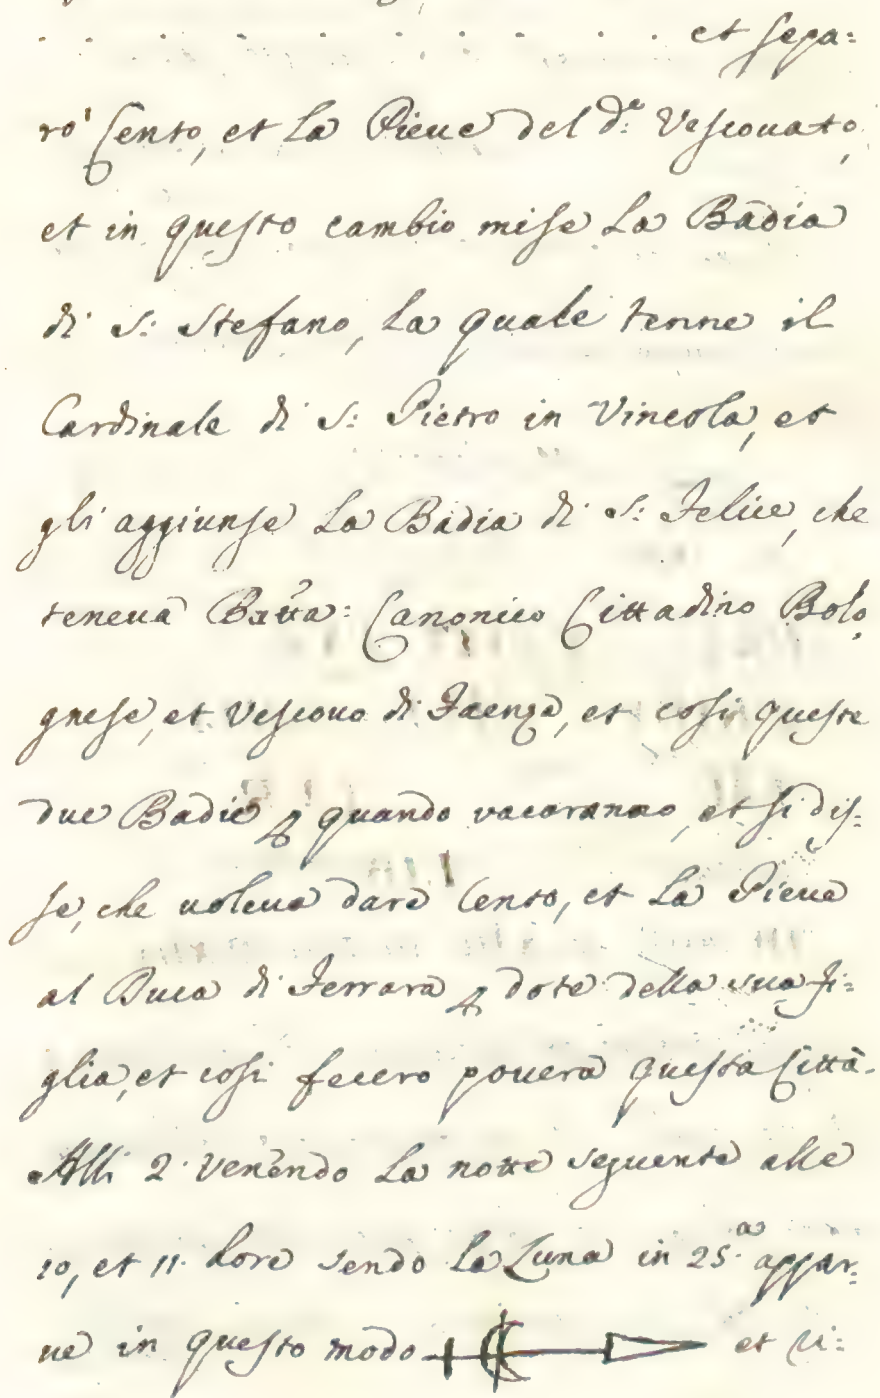 . . . . . . . . . . et sepa=
rò Cento, et La Pieve del d.º Vescovato,
et in questo cambio mise La Badia
di S: Stefano, La quale tenne il
Cardinale di S: Pietro in Vincola, et
gli aggiunse La Badia di S: Felice, che
teneva Batta: Canonico Cittadino Bolo
gnese, et Vescovo di Faenza, et cosi queste
due Badie p quando vacaranno, et si dis=
se, che voleva dare Cento, et La Pieve
al Duca di Ferrara p dote della sua fi=
glia, et cosi fecero povera questa Città.
Alli 2. venendo La notte seguente alle
10, et 11. hore sendo La Luna in 25.a appar=
ve in questo modo et vi=